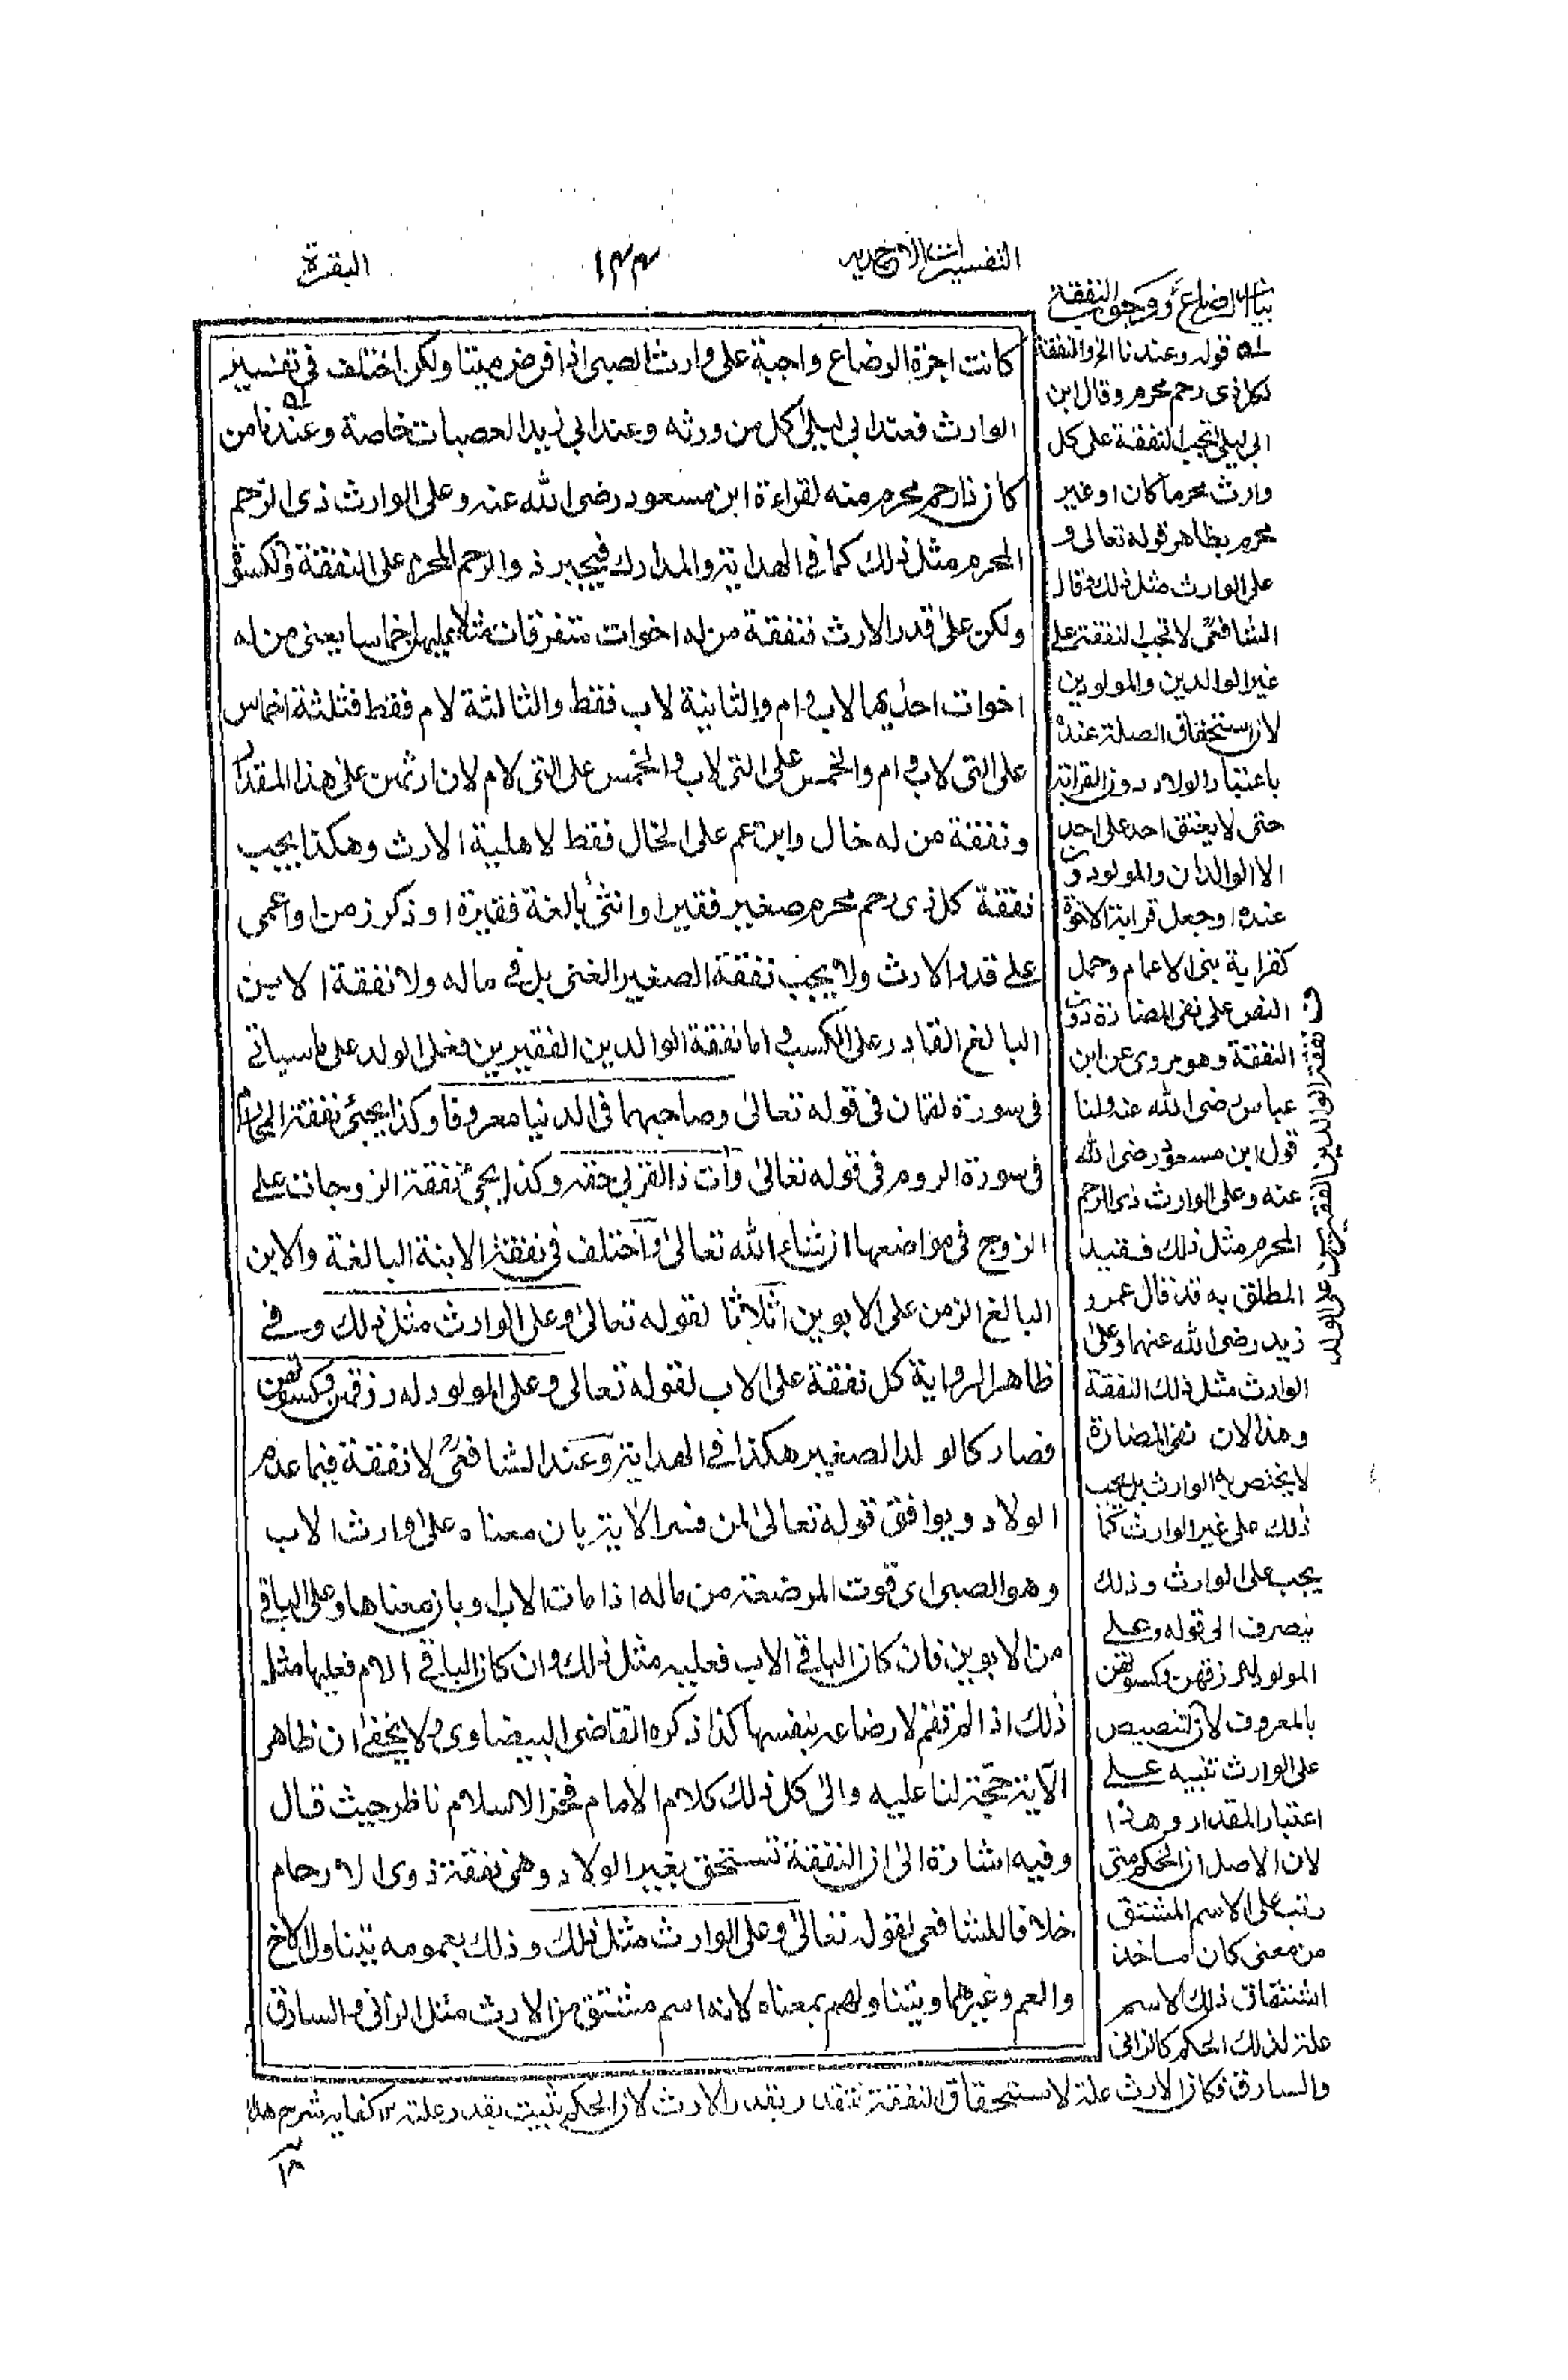 التفسيرات الاحمدية
١٤٤
البقرة
بيان الرضاع ووجوب النفقة
كانت اجرة الرضاع واجبة على وارث الصبى اذا فرض ميتا ولكن اختلف فى تفسير
الوارث فعند ابى ليلىٰ كل من ورثه وعند ابى زيد العصبات خاصة وعندنا من
كان ذا رحم محرم منه لقراءة ابن مسعود رضى الله عنه وعلى الوارث ذى الرحم
المحرم مثل ذلك كما فى الهداية والمدارك فيجبر ذو الرحم المحرم على النفقة والكسوة
ولكن علىٰ قدر الارث فنفقة من له اخوات متفرقات مثلا عليهن اخماسا يعنى من له
اخوات احدٰيها لاب و ام والثانية لاب فقط والثالثة لام فقط فثلثة اخماس
على التى لاب و ام والخمس على التى لاب والخمس على التى لام لان ارثهن على هذا المقدار
ونفقة من له خال وابن عم على الخال فقط لاهلية الارث وهكذا يجب
نفقة كل ذى رحم محرم صغير فقير او انثىٰ بالغة فقيرة او ذكر زمن او اعمى
علے قدر الارث ولا يجب نفقة الصغير الغنى بل فى ماله ولا نفقة الابن
البالغ القادر على الكسب و اما نفقة الوالدين الفقيرين فعلى الولد على ما سياتى
فى سورة لقمان فى قوله تعالىٰ وصاحبهما فى الدنيا معروفا وكذا يجئ نفقة المحارم
فى سورة الروم فى قوله تعالىٰ وآت ذا القربى حقه وكذا يجئ نفقة الزوجات علے
الزوج فى مواضعها ان شاء الله تعالىٰ واختلف فى نفقة الابنة البالغة والابن
البالغ الزمن على الابوين اثلاثا لقوله تعالىٰ وعلى الوارث مثل ذلك وفے
ظاهر الرواية كل نفقة على الاب لقوله تعالى وعلى المولود له رزقهن وكسوتهن
فصار كالولد الصغير هكذا فے الهداية وعند الشافعىؒ لا نفقة فيما عدا
الولاد ويوافق قوله تعالىٰ لمن فسر الآية بان معناه علىٰ وارث الاب
وهو الصبى اى قوت المرضعة من ماله اذا مات الاب وبان معناها وعلى الباقے
من الابوين فان كان الباقے الاب فعليه مثل ذلك وان كان الباقے الام فعليها مثل
ذلك اذ المرتقم لارضاعه بنفسها كذا ذكره القاضى البيضاوى ولا يخفىٰ ان ظاهر
الآية حجة لنا عليه والىٰ كل ذلك كلام الامام فخر الاسلام ناظر حيث قال
وفيه اشارة الىٰ ان النفقة تستحق بغير الولاد وهى نفقة ذوى الارحام
خلافا للشافعى لقوله تعالىٰ وعلى الوارث مثل ذلك وذلك بعمومه يتناول الاخ
والعم وغيرهما ويتناولهم بمعناه لانه اسم مشتق من الارث مثل الزانى والسارق
قوله وعندنا الخ والنفقة
لكل ذى رحم محرم وقال ابن
ابى ليلىٰ تجب النفقة على كل
وارث محرما كان او غير
محرم بظاهر قوله تعالى و
على الوارث مثل ذلك قال
الشافعىؒ لا تجب النفقة على
غير الوالدين والمولودين
لان استحقاق الصلة عنده
باعتبار الولاد دون القرابة
حتى لا يعتق احد على احد
الا الوالدان والمولودون
عنده وجعل قرابة الاخوة
كقرابة بنى الاعمام وحمل
النص على نفى المضارة دون
النفقة وهو مروى عن ابن
عباس رضى الله عنه ولنا
قول ابن مسعود رضى الله
عنه وعلى الوارث ذى الرحم
المحرم مثل ذلك فقيد
المطلق به قد قال عمر و
زيد رضى الله عنهما وعلى
الوارث مثل ذلك النفقة
وهذا لان نفى المضارة
لا يختص به الوارث بل يجب
ذلك على غير الوارث كما
يجب على الوارث وذلك
ينصرف الى قوله وعلے
المولود له رزقهن وكسوتهن
بالمعروف لان التنصيص
على الوارث تنبيه علے
اعتبار المقدار وهذا
لان الاصل ان الحكم متى
رتب على الاسم المشتق
من معنى كان ماخذ
اشتقاق ذلك الاسم
علة لذلك الحكم كالزانى
والسارق فكان الارث علة لاستحقاق النفقة فتقدر بقدر الارث لان الحكم يثبت بقدر علته ١٢ كفايه شرح هدايه
ف نفقة الوالدين الفقيرين على الولد
١٨